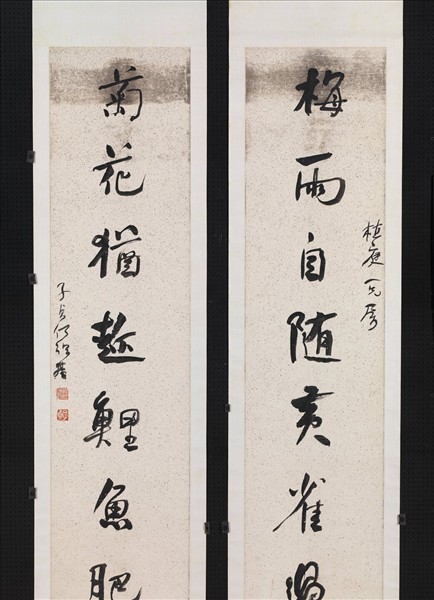 梅雨自隨黃雀
桂庭一兄屬
菊花猶趁鯉魚肥
子貞何紹基